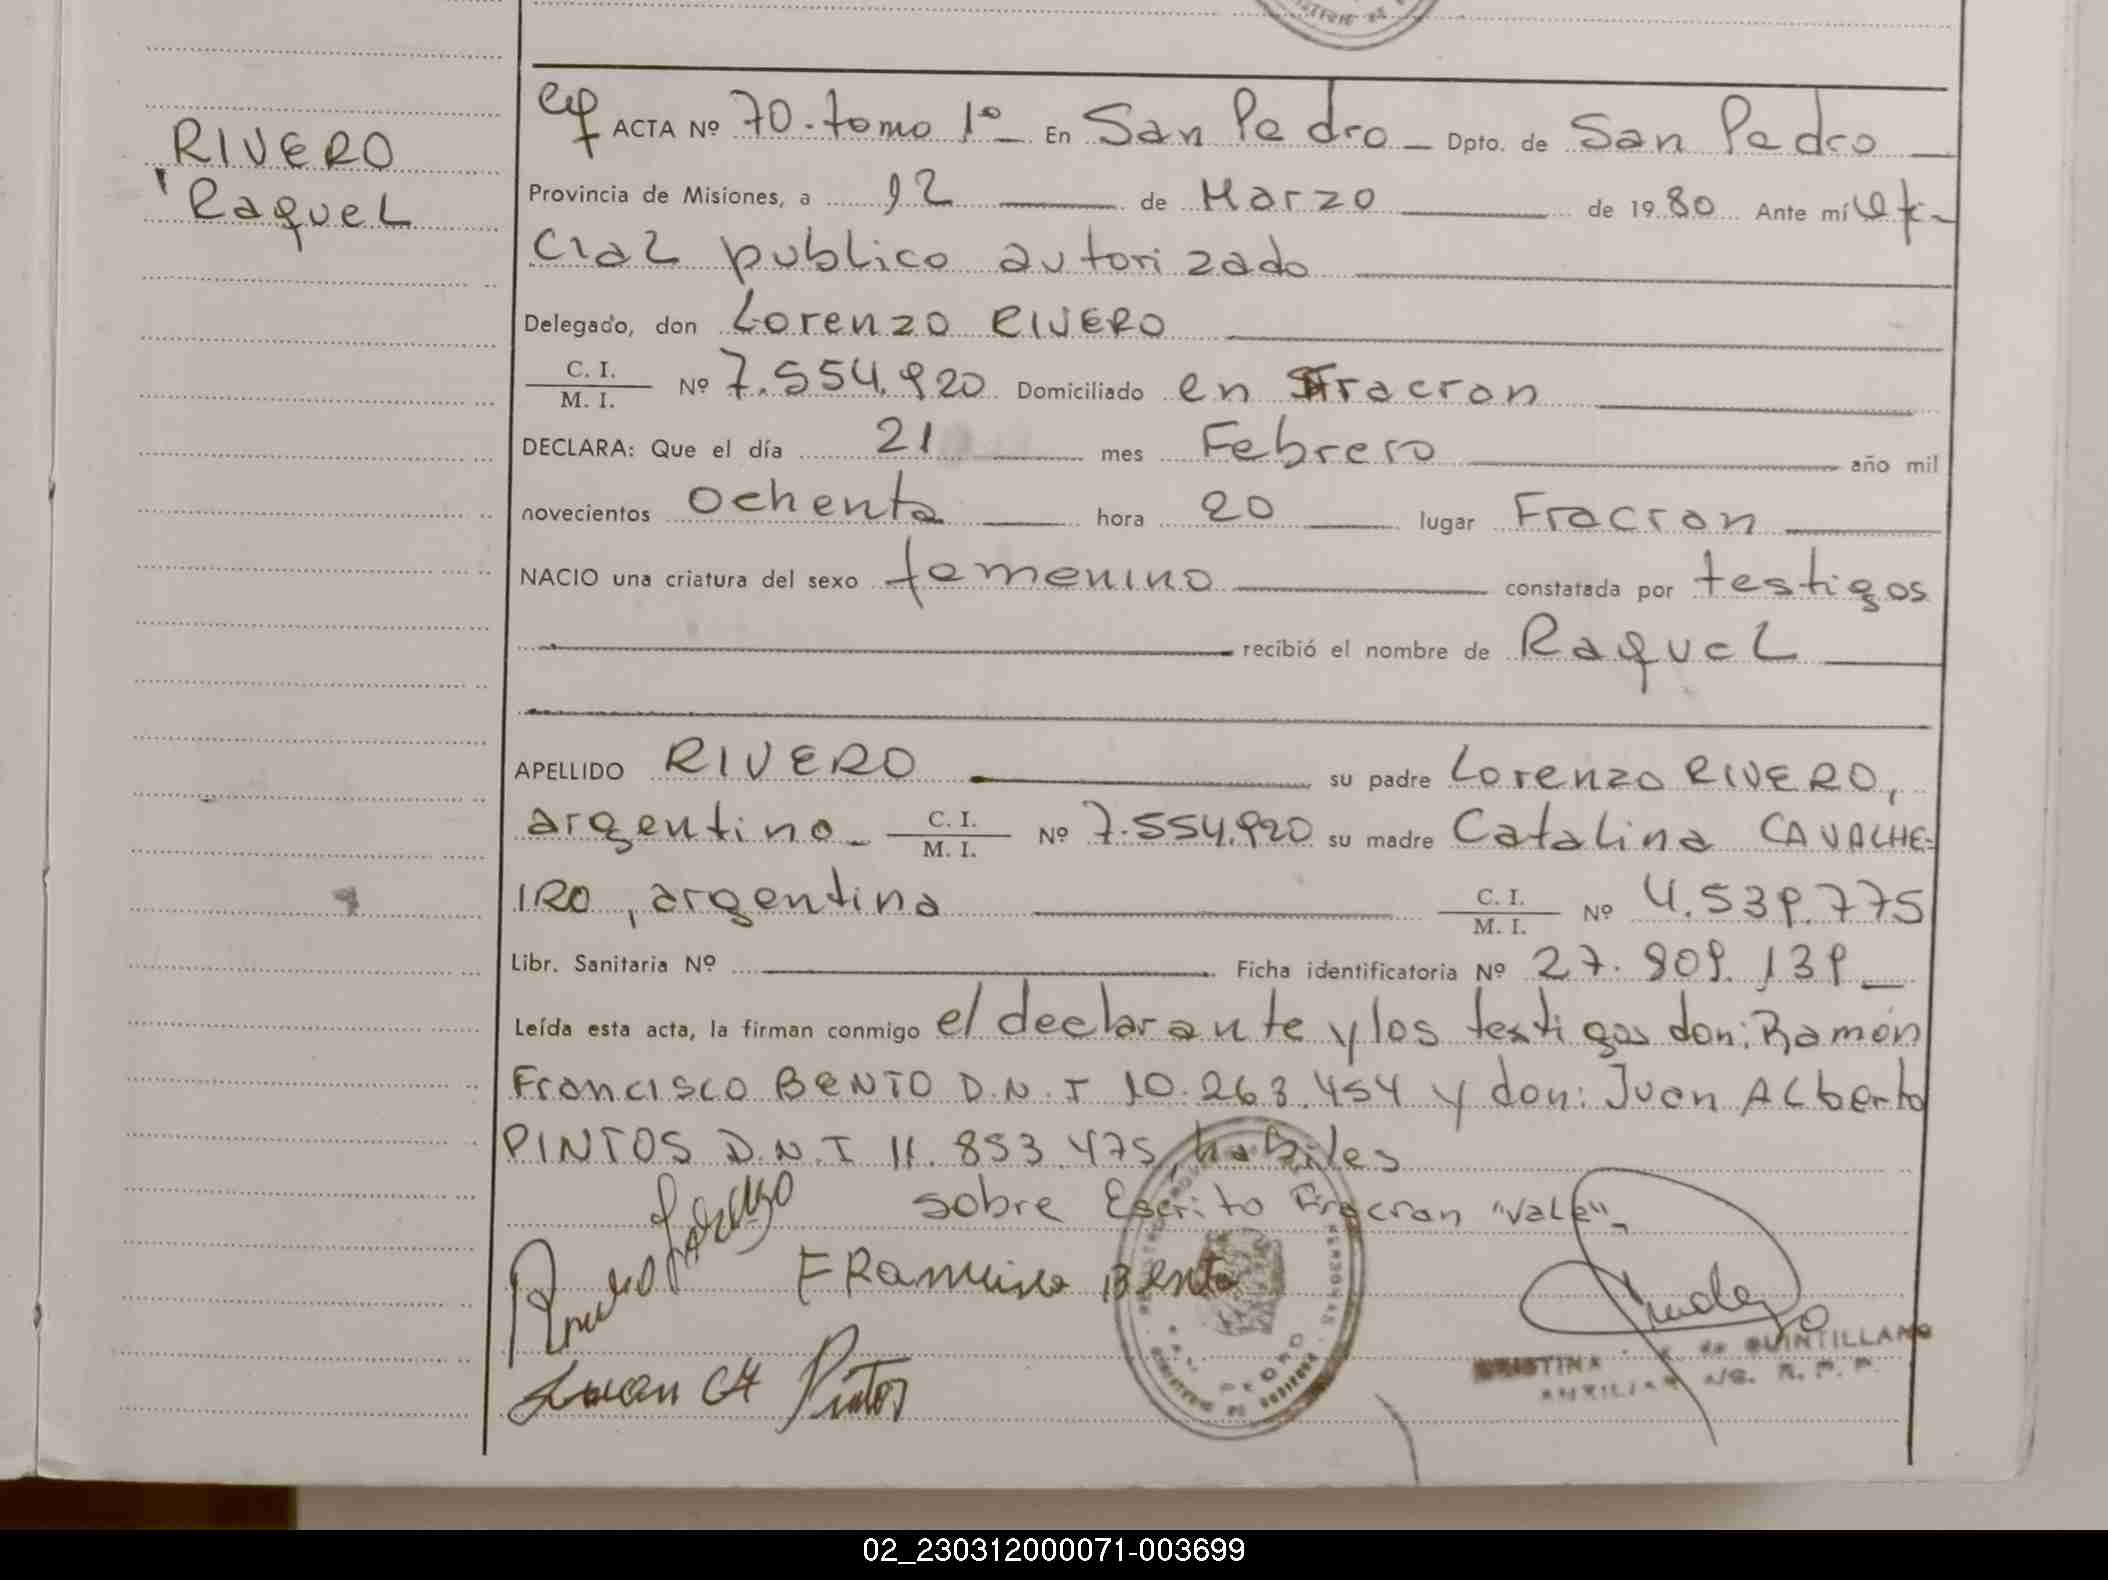 RIVERO
Raquel
ACTA Nº 70. tomo 1º En San Pedro Dpto. de San Pedro
Provincia de Misiones, a 12 de Marzo de 1980 Ante mí Ofi-
cial publico autorizado
Delegado, don Lorenzo RIVERO
C. I.
M. I. Nº 7.554.920 Domiciliado en Fracran
DECLARA: Que el día 21 mes Febrero año mil
novecientos ochenta hora 20 lugar Fracran
NACIO una criatura del sexo femenino constatada por testigos
recibió el nombre de Raquel
APELLIDO RIVERO su padre Lorenzo RIVERO,
argentino C. I.
M. I. Nº 7.554.920 su madre Catalina CAVALHE-
IRO, argentina C. I.
M. I. Nº 4.539.775
Libr. Sanitaria Nº Ficha identificatoria Nº 27.809.139
Leída esta acta, la firman conmigo el declarante y los testigos don: Ramón
Francisco BENTO D.N.I 10.263.454 y don: Juan Alberto
PINTOS D.N.I 11.853.475, habiles
sobre Escrito Fracran "vale".
Bento
Juan A Pintos
SAN PEDRO
de QUINTILLANO
CRISTINA
AUXILIAR
02_230312000071-003699